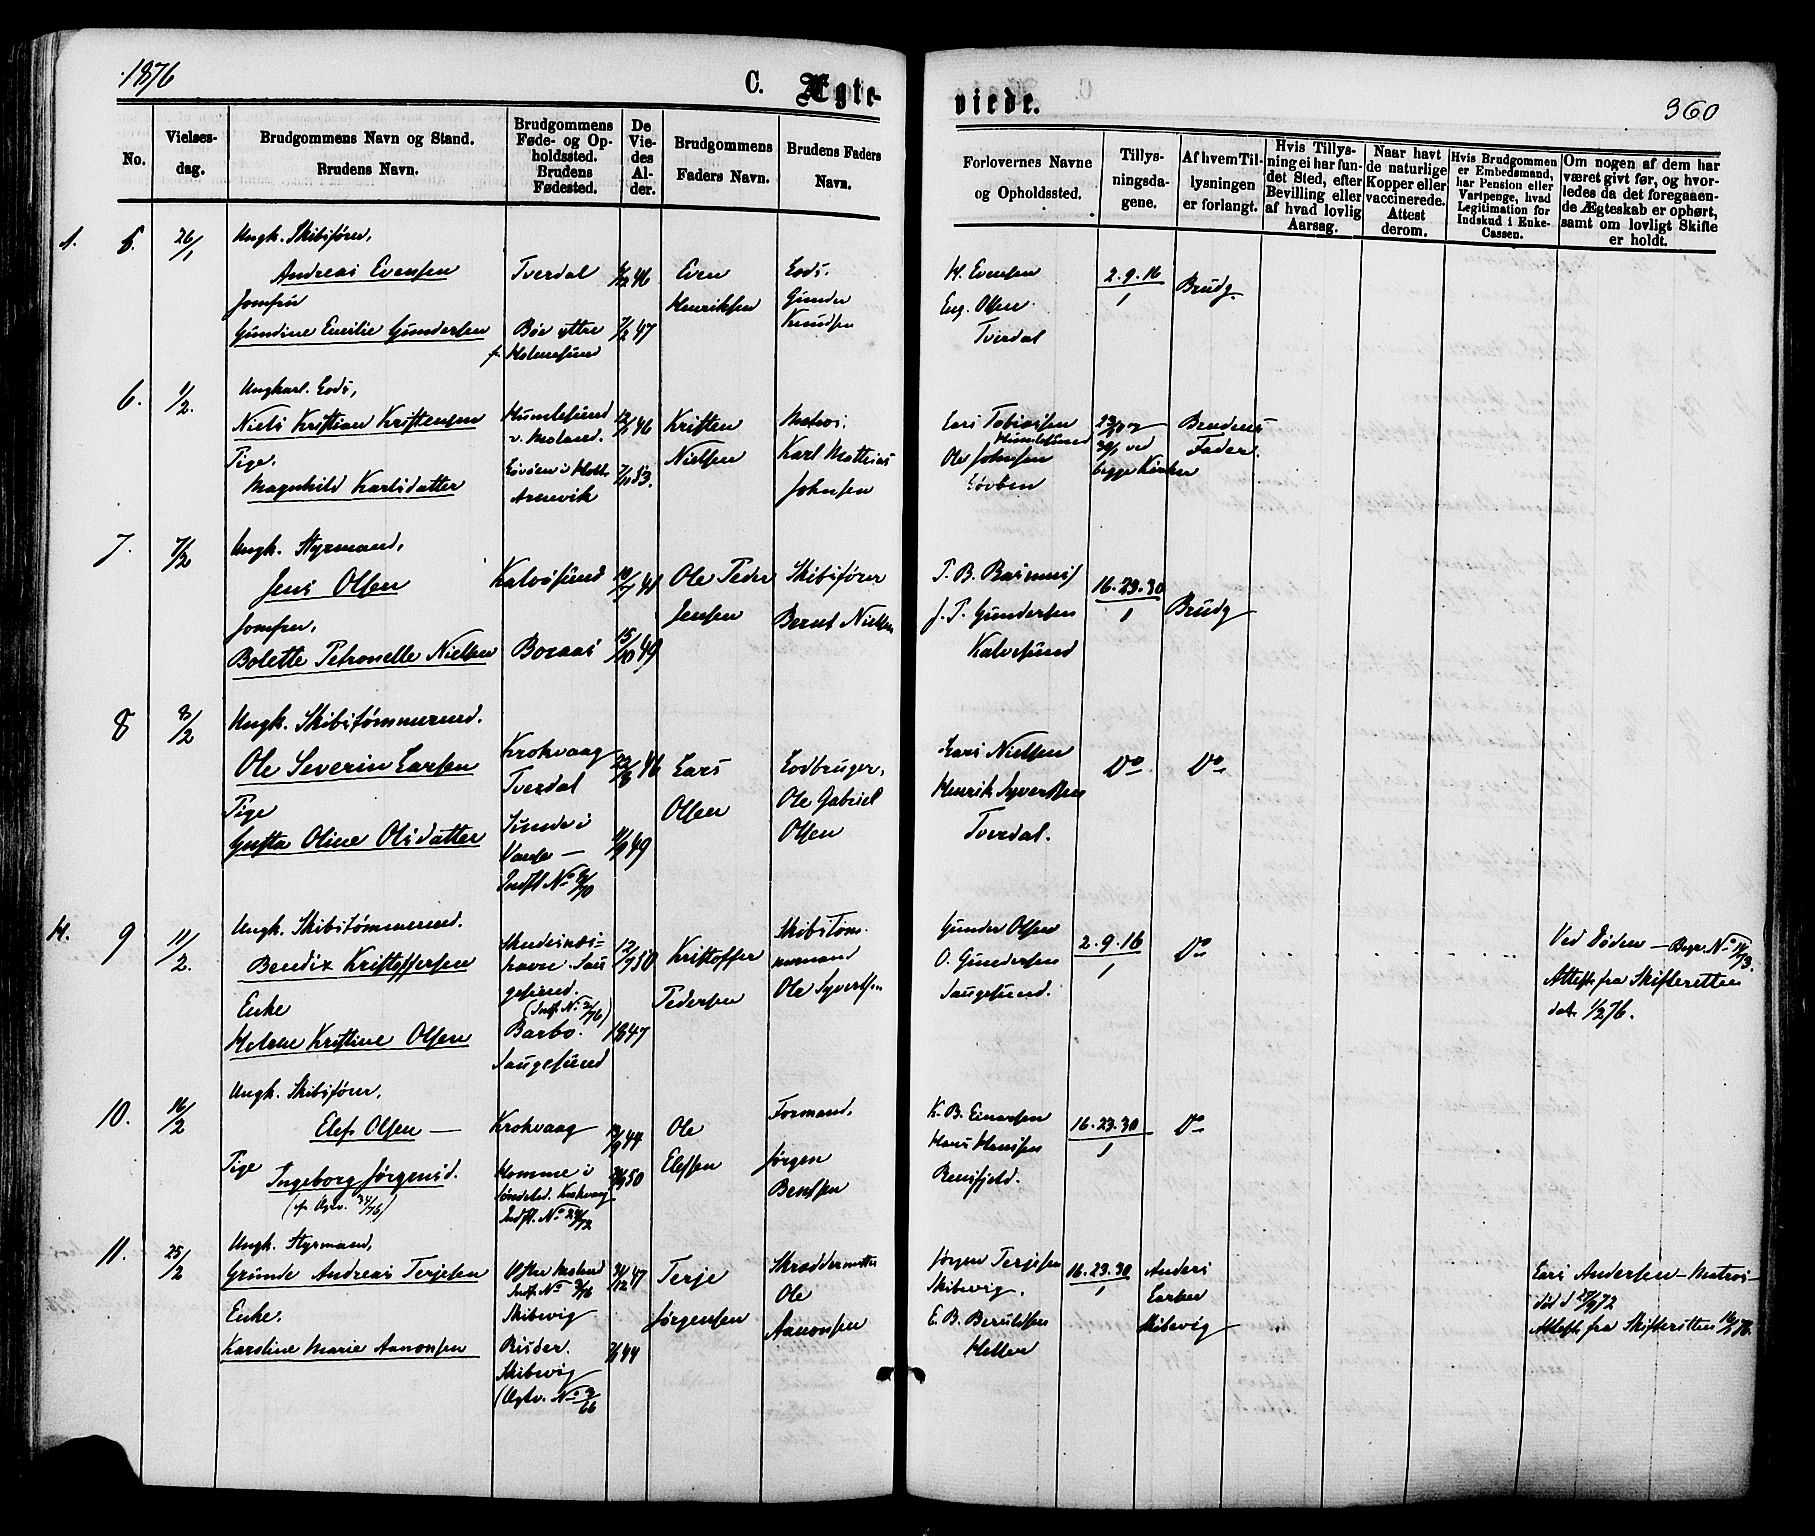 1876
C. Ægte-
viede.
360
No.
Vielses-
dag.
Brudgommens Navn og Stand.
Brudens Navn.
Brudgommens
Føde- og Op-
holdssted.
Brudens
Fødested.
De
Vie-
des
Al-
der.
Brudgommens
Faders Navn.
Brudens Faders
Navn.
Forlovernes Navne
og Opholdssted.
Tillys-
ningsda-
gene.
Af hvem Til-
lysningen
er forlangt.
Hvis Tillys-
ning ei har fun-
det Sted, efter
Bevilling eller
af hvad lovlig
Aarsag.
Naar havt
de naturlige
Kopper eller
vaccinerede.
Attest
derom.
Hvis Brudgommen
er Embedsmand,
har Pension eller
Vartpenge, hvad
Legitimation for
Indskud i Enke-
Cassen.
Om nogen af dem har
været givt før, og hvor-
ledes da det foregaaen-
de Ægteskab er ophørt,
samt om lovligt Skifte
er holdt.
5. 26/1
Ungk. Skibsfører,
Andreas Evensen
Jomfru
Gundine Emilie Gundersen
Tverdal
Bøe ytre
f. Holmesund
46
7/2 47
Even
Henriksen
Lods.
Gunder
Knudsen
H. Evensen
Eng. Olsen
Tverdal
2. 9. 16
1
Brudg.
6. 1/2.
Ungkarl. Lods,
Niels Kristian Kristensen
Pige.
Magnhild Karlsdatter
Humlesund
v. Moland.
Arnevik
46
53.
Kristen
Nielsen
Matros.
Karl Mathias
Johnsen
Lars Tobiassen
Humlesund
Ole Johnsen
ved
begge Kirker
Brudens
Fader.
7. 7/2
Ungk. Styrmand,
Jens Olsen
Jomfru,
Bolette Petronelle Nielsen
Kalvøsund
Boraas
15/10 49
Ole Peder
Jensen
Skibsfører
Bernt Nielsen
T. B. Rasmus
J. P. Gundersen
Kalvesund
16. 23. 30
1
Brudg
8 8/2
Ungk. Skibstømmermd.
Ole Severin Larsen
Pige
Gusta Oline Olsdatter
Krokvaag
Tverdal
Sunde i
Vanse —
Indfl. No
22/8 46
49
Lars
Olsen
Lodbruger,
Ole Gabriel
Olsen
Lars Nielsen
Henrik Syvertsen
Tverdal.
Do
Do
9 11/2.
Ungk. Skibstømmermd.
Bendix Kristoffersen
Enke
Helene Kristine Olsen
Skudesnæs-
havn Sau
gesund.
Barbo.
Saugesund
12/7 50
1847
Kristoffer
Pedersen
Skibstøm-
mermand
Ole Syvertsen
Gunder Olsen
O. Gundersen
Saugesund.
2. 9. 16
1
Do
Ved Døden — Begr. No 14/73.
Attest fra Skifteretten
dat. 1/2 76.
10. 16/2
Ungk. Skibsfører,
Elef Olsen —
Pige
Ingeborg Jørgensd.
Krokvaag
Homme i
Krokvaag
Indfl. No
44
50
Ole
Elefsen
Formand,
Jørgen
Bentsen
K. B. Einersen
Hans Hansen
Rensfjeld.
16. 23. 30
1
Do
11. 25/2
Ungk. Styrmand,
Grunde Andreas Terjesen
Enke.
Karoline Marie Aanonsen
Skibevig
Risøer.
Skibevig
47
44
Terje
Jørgensen
Skræddermester
Ole
Aanonsen
Jørgen Terjesen
Skibevig.
E. B. Berulfsen
Heller
16. 23. 30
1
Anders
Larsen
Skibevig
Lars Andersen — Matros —
Attest fra Skifteretten